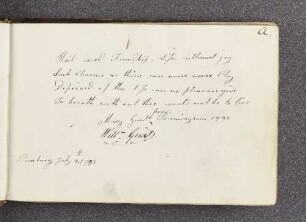 a.
Hail Friendship, Life without joy
Such Charms as thine can never never Cloy
Deprived of thee Life can no pleasure give
To breath with out thee would not be to live
Mary from Birmingham 1793
Will^m
July 25th 1793